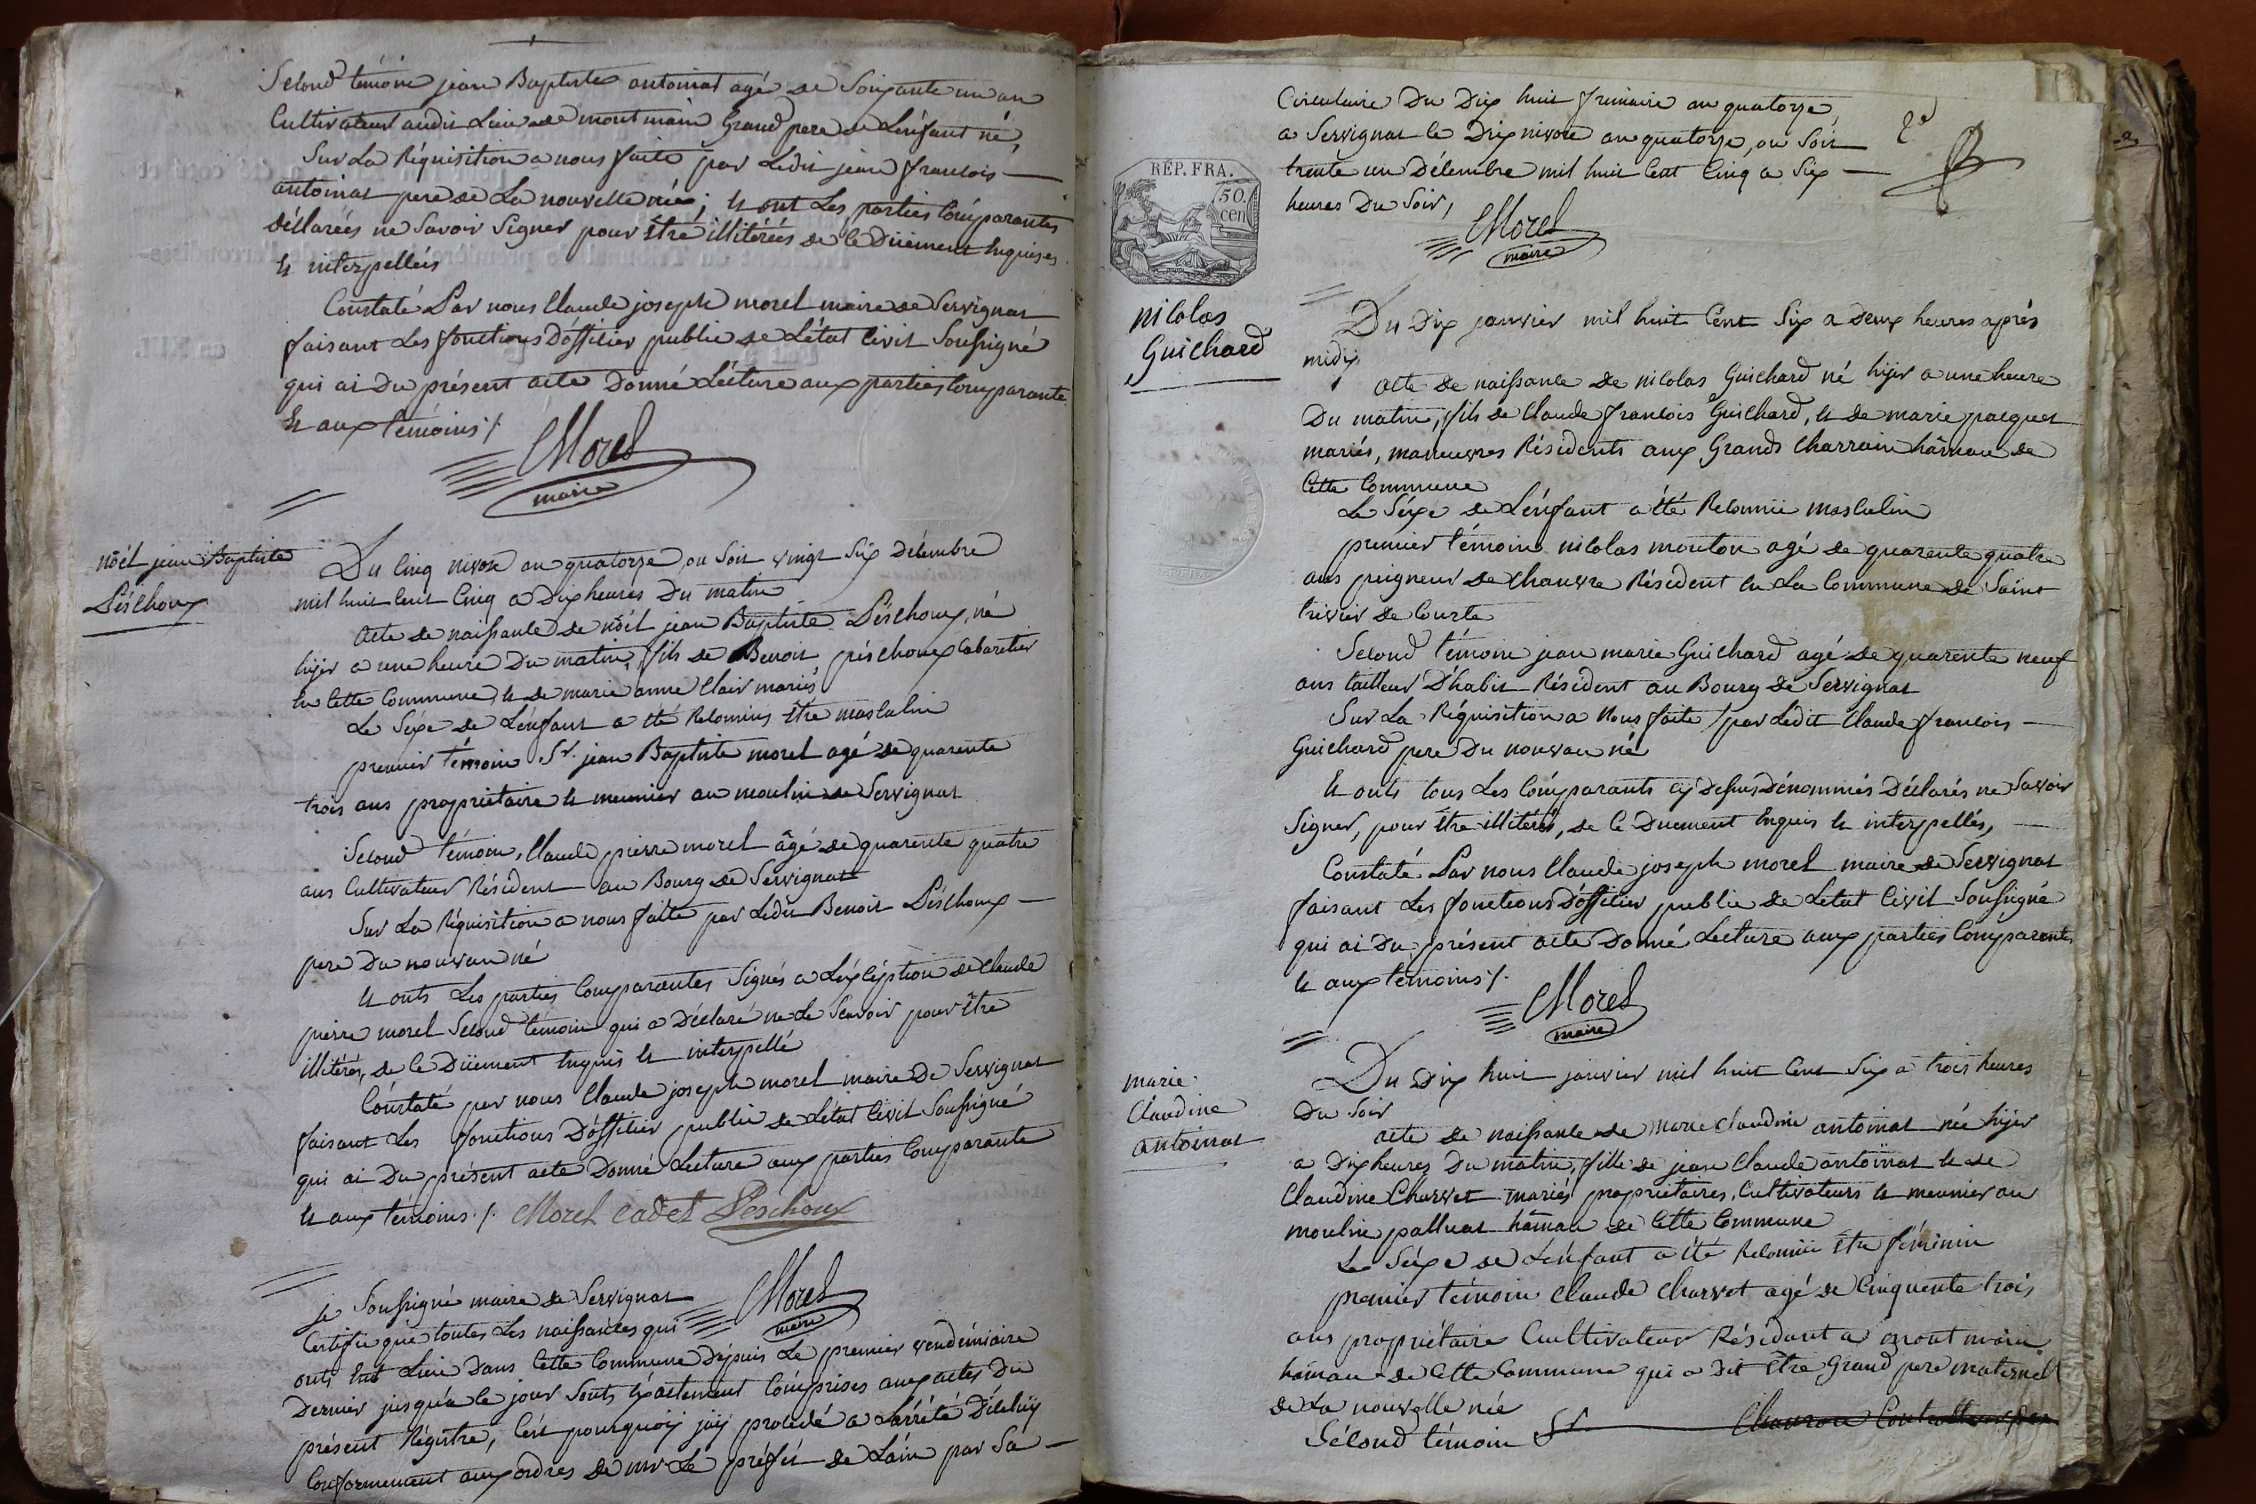 Second témoin jean Baptiste antoinat agé de Soixante un an
Cultivateur audit Lieu de montmain Grand pere de L'énfant né,
Sur La Réquisition a nous faite par Ledit jean francois
antoinat pere de La nouvelle née; et ont Les parties Comparantes
déclarées ne Savoir Signer pour être illitérées de ce Düement Enquises
et interpellées
Constaté Par nous Claude joseph morel maire de Servignat
faisant Les fonctions D'officier public de L'état Civil Soussigné
qui ai Du présent acte Donné Lécture aux parties Comparante
et aux témoins /.
CMorel
maire
noël jean Baptiste
Péschoux
Du Cinq nivose an quatorze, ou Soit vingt Six Décembre
mil huit Cent Cinq a Dix heures Du matin
Acte de naissance de noël jean Baptiste Péschoux, né
hijer a une heure Du matin, fils de Benoit péschoux Cabaretier
En Cette Commune, et de marie anne Clair mariés
Le Séxe de L'énfant a été Reconnus être masculin
premier témoin Sr. jean Baptiste morel agé de quarente
trois ans propriétaire et meunier au moulin de Servignat
Second témoin, Claude pierre morel âgé de quarente quatre
ans Cultivateur Résident au Bourg de Servignat
Sur La Réquisition a nous faite par Ledit Benoit Péschoux
pere Du nouveau né
Et onts Les parties Comparantes Signés a L'éxception de Claude
pierre morel Second témoin qui a Déclaré ne Le Scavoir pour être
illitérés, de ce Düement Enquis et interpellé
Constaté par nous Claude joseph morel maire De Servignat
faisant Les fonctions D'officier public de L'état Civil Soussigné
qui ai Du présent acte Donné Lecture aux parties Comparante
et aux témoins ./. Morel cadet Péschoux
CMorel
maire
je Soussigné maire de Servignat
Certifie que toutes Les naissances qui
onts Eut Lieu Dans Cette Commune Dépuis Le premier vendémiaire
Dernier jusqu'a ce jour Sonts éxactement Comprises aux actes Du
présent Régistre, C'est pourquoÿ j'aÿ procédé a L'arrété D'iceluÿ
Conformement aux ordres de mr Le préfét de L'ain par Sa
Circulaire Du Dix huit frimaire an quatorze,
a Servignat le Dix nivose an quatorze, ou Soit
trente un Décembre mil huit Cent Cinq a Six
heures Du Soir,
2e
CMorel
maire
RÉP. FRA.
50.
cen
nicolas
Guichard
Du Dix janvier mil huit Cent Six a deux heures aprés
midÿ
acte de naissance de nicolas Guichard né hijer a une heure
Du matin, fils de Claude francois Guichard, et de marie pacquet
mariés, maneuvres Résidents aux Grands Charrain hâmeau de
Cette Commune
Le Séxe de L'énfant a été Reconnu masculin
premier témoin nicolas mouton agé de quarente quatre
ans peigneur de Chanvre Résident En La Commune de Saint
trivier de Courte
Second témoin jean marie Guichard agé de quarente neuf
ans tailleur D'habit Résident au Bourg de Servignat
Sur La Réquisition a Nous faite par Ledit Claude francois
Guichard pere Du nouveau né
Et onts tous Les Comparants cÿ dessus Dénommés Déclarés ne Savoir
Signer, pour être illitérés, de ce Duement Enquis et interpellés,
Constaté Par nous Claude joseph morel maire de Servignat
faisant Les fonctions D'officier public de L'état Civil Soussigné
qui ai Du présent acte Donné Lecture aux parties Comparentes
et aux témoins /.
CMorel
maire
marie
Claudine
antoinat
Du Dix huit janvier mil huit Cent Six a trois heures
Du Soir
acte de naissance de marie claudine antoinat née hijer
a Dix heures Du matin, fille de jean Claude antoinat et de
Claudine Charvet mariés propriétaires, Cultivateurs et meunier au
moulin palluat hâmau de Cette Commune
Le Séxe de L'énfant a été Reconnu être féminin
premier témoin Claude Charvet agé de Cinquente trois
ans propriétaire Cultivateur Résidant a montmain
hâmau de Cette Commune qui a Dit être Grand pere maternel
de La nouvelle née
Sécond témoin Sr